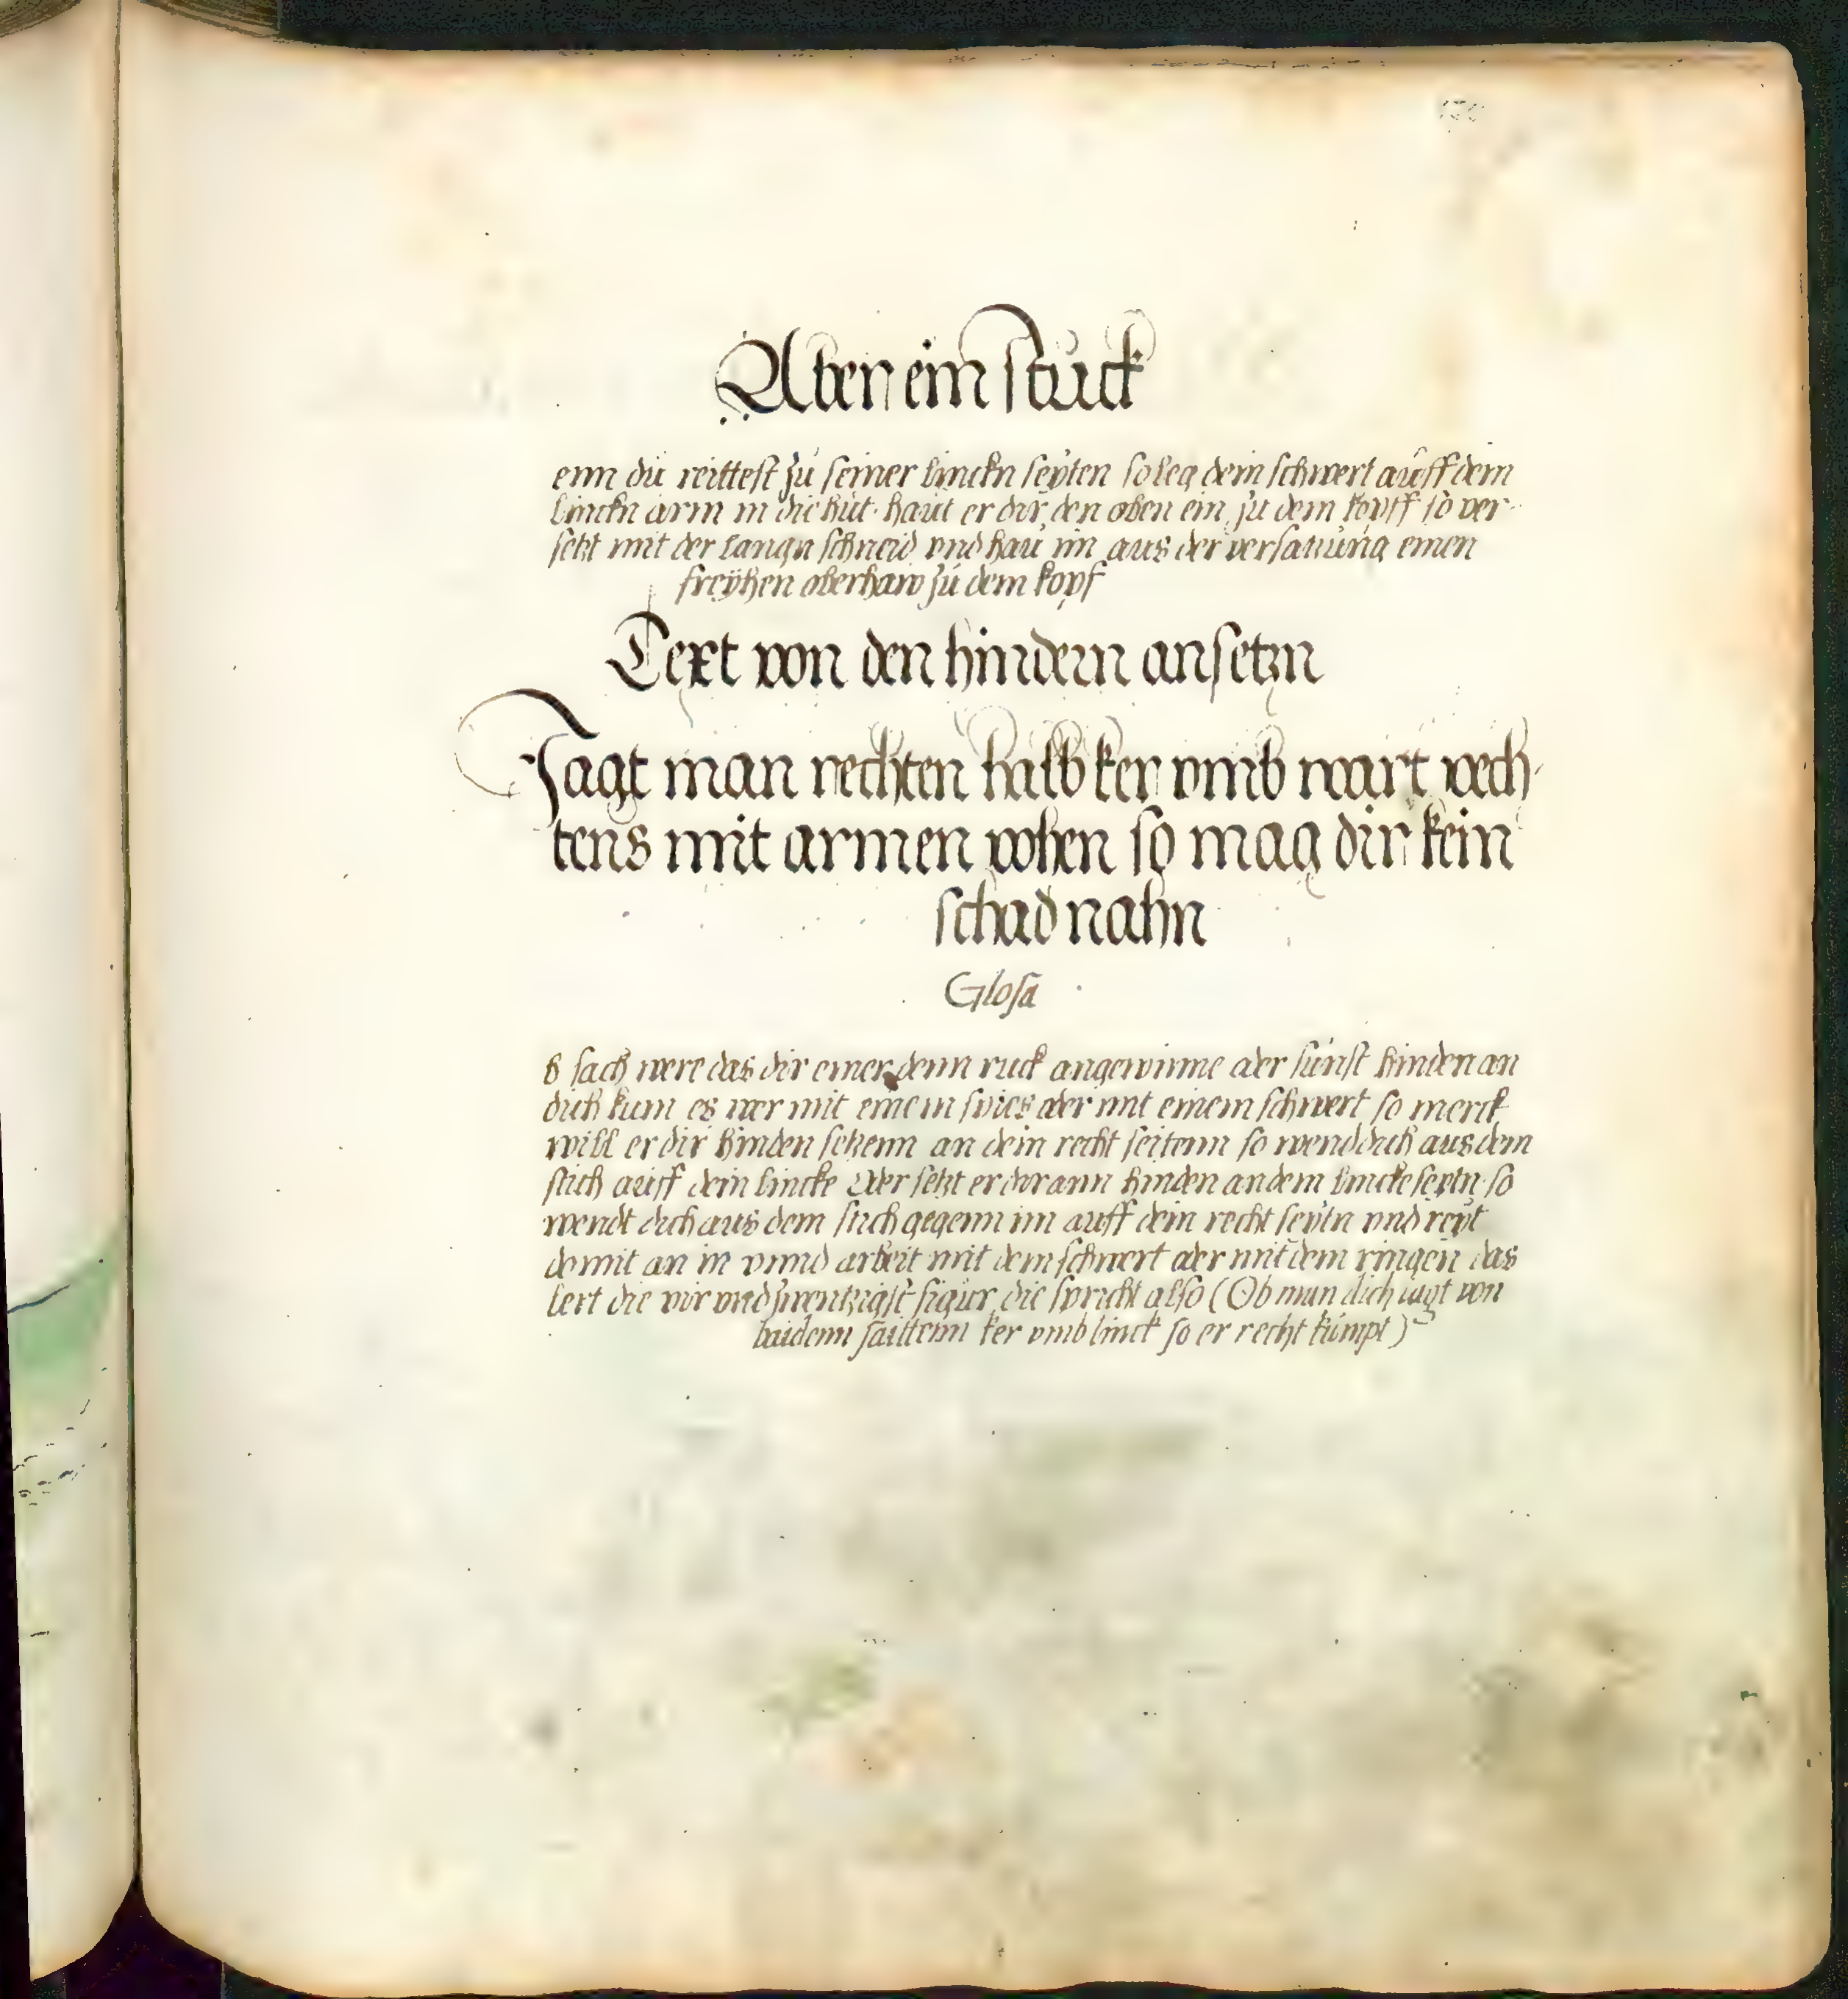 Aber ein stuck
enn du reittest zu seiner linckn seyten so leg dein schwert auff dein
linckn arm in die hut haut er dir den oben ein zu dem kopff so ver
setzt mit der langn schneid vnd hau im aus der versatzung einen
freyhen oberhaw zu dem kopf
Text von den hindern ansetzn
Jagt man rechten halb ker vmb wart vech
tens mit armen vohen so mag dir kein
schad nahn
Glosa
b sach were das dir einer denn ruck angewinne ader sunst hinden an
dich kum es wer mit einem spies ader mit einem schwert so merck
will er dir hinden setzenn an dein recht seitenn so wend dich aus dem
stich auff dein lincke Aber setzt er dir ann hinden an dem lincke seytn so
wendt dich aus dem stich gegenn im auff dein recht seytn vnd reyt
domit an in vnnd arbeit mit dem schwert ader mit dem ringen das
lert die vir vnd zwentzigst figur die spricht also (Ob man dich iagt von
baidenn saittenn ker vmb linck so er recht kumpt)